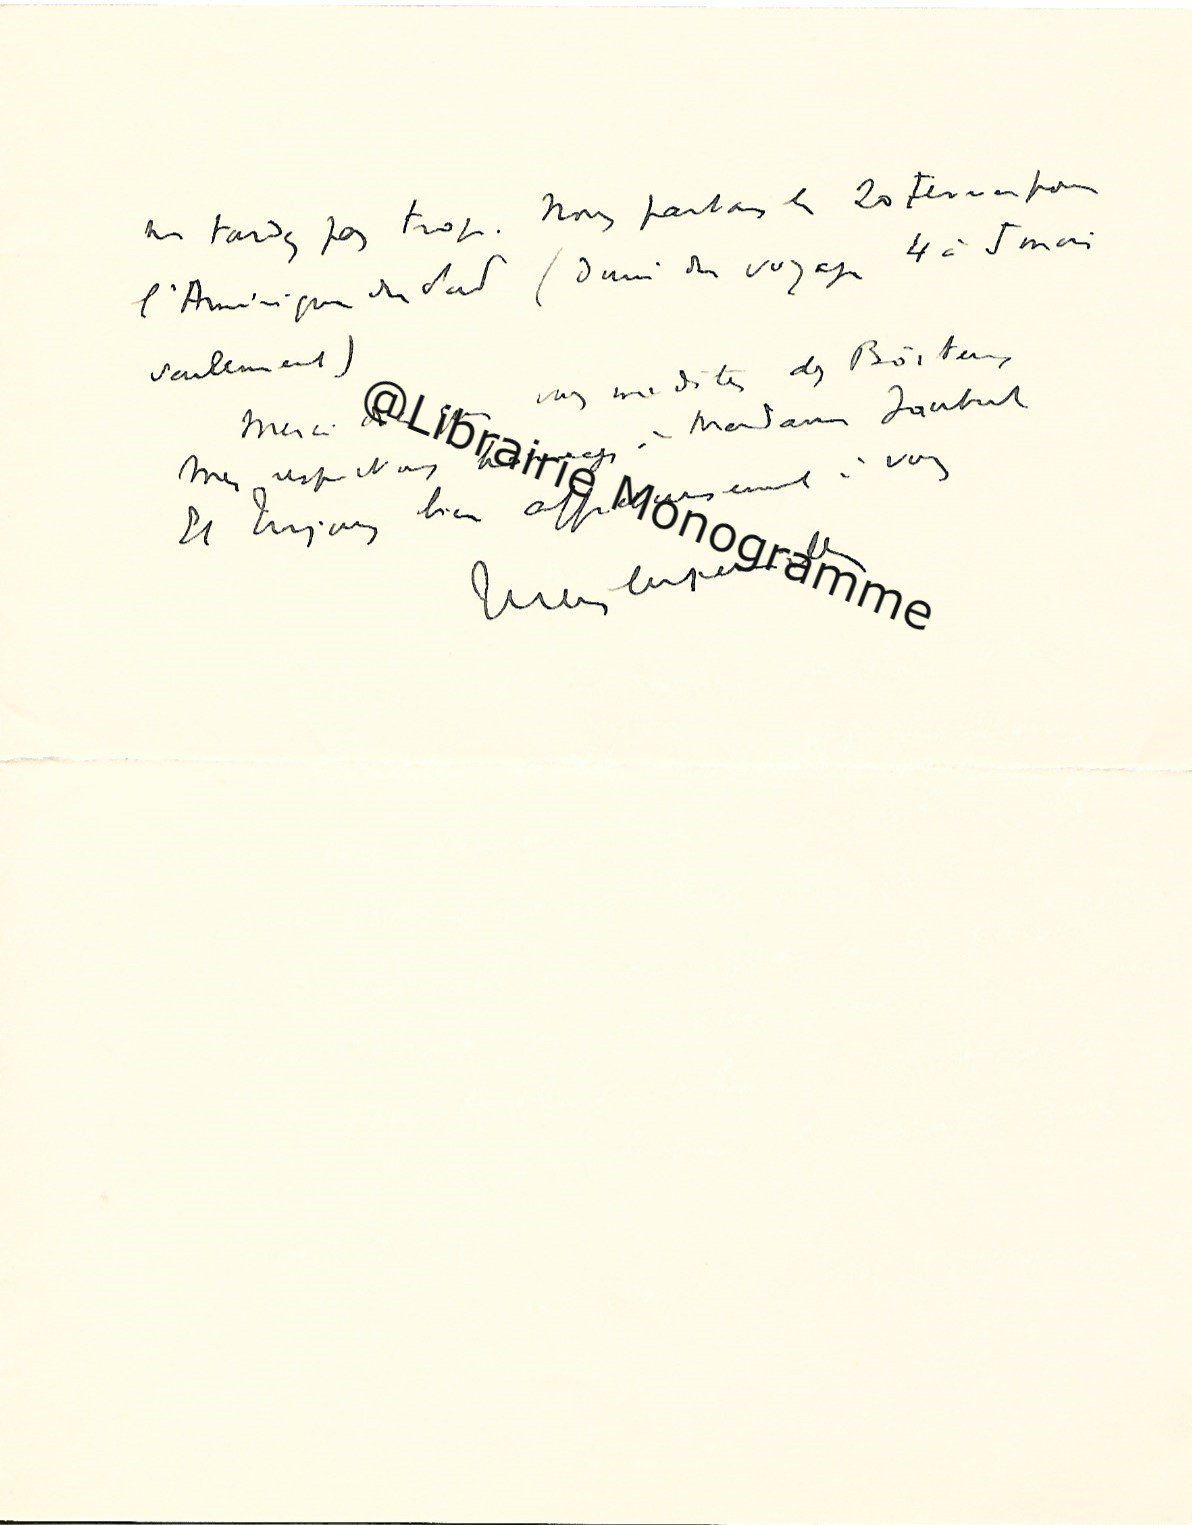 ne tardez pas trop. Nous partons le 20 Février pour
l'Amérique du Sud (durée du voyage 4 à 5 mois
seulement)
Merci de vos inédites des
Mes respectueux hommages à Madame Joubert
Et toujours bien affectueusement à vous
Jules Supervielle
@Librairie Monogramme